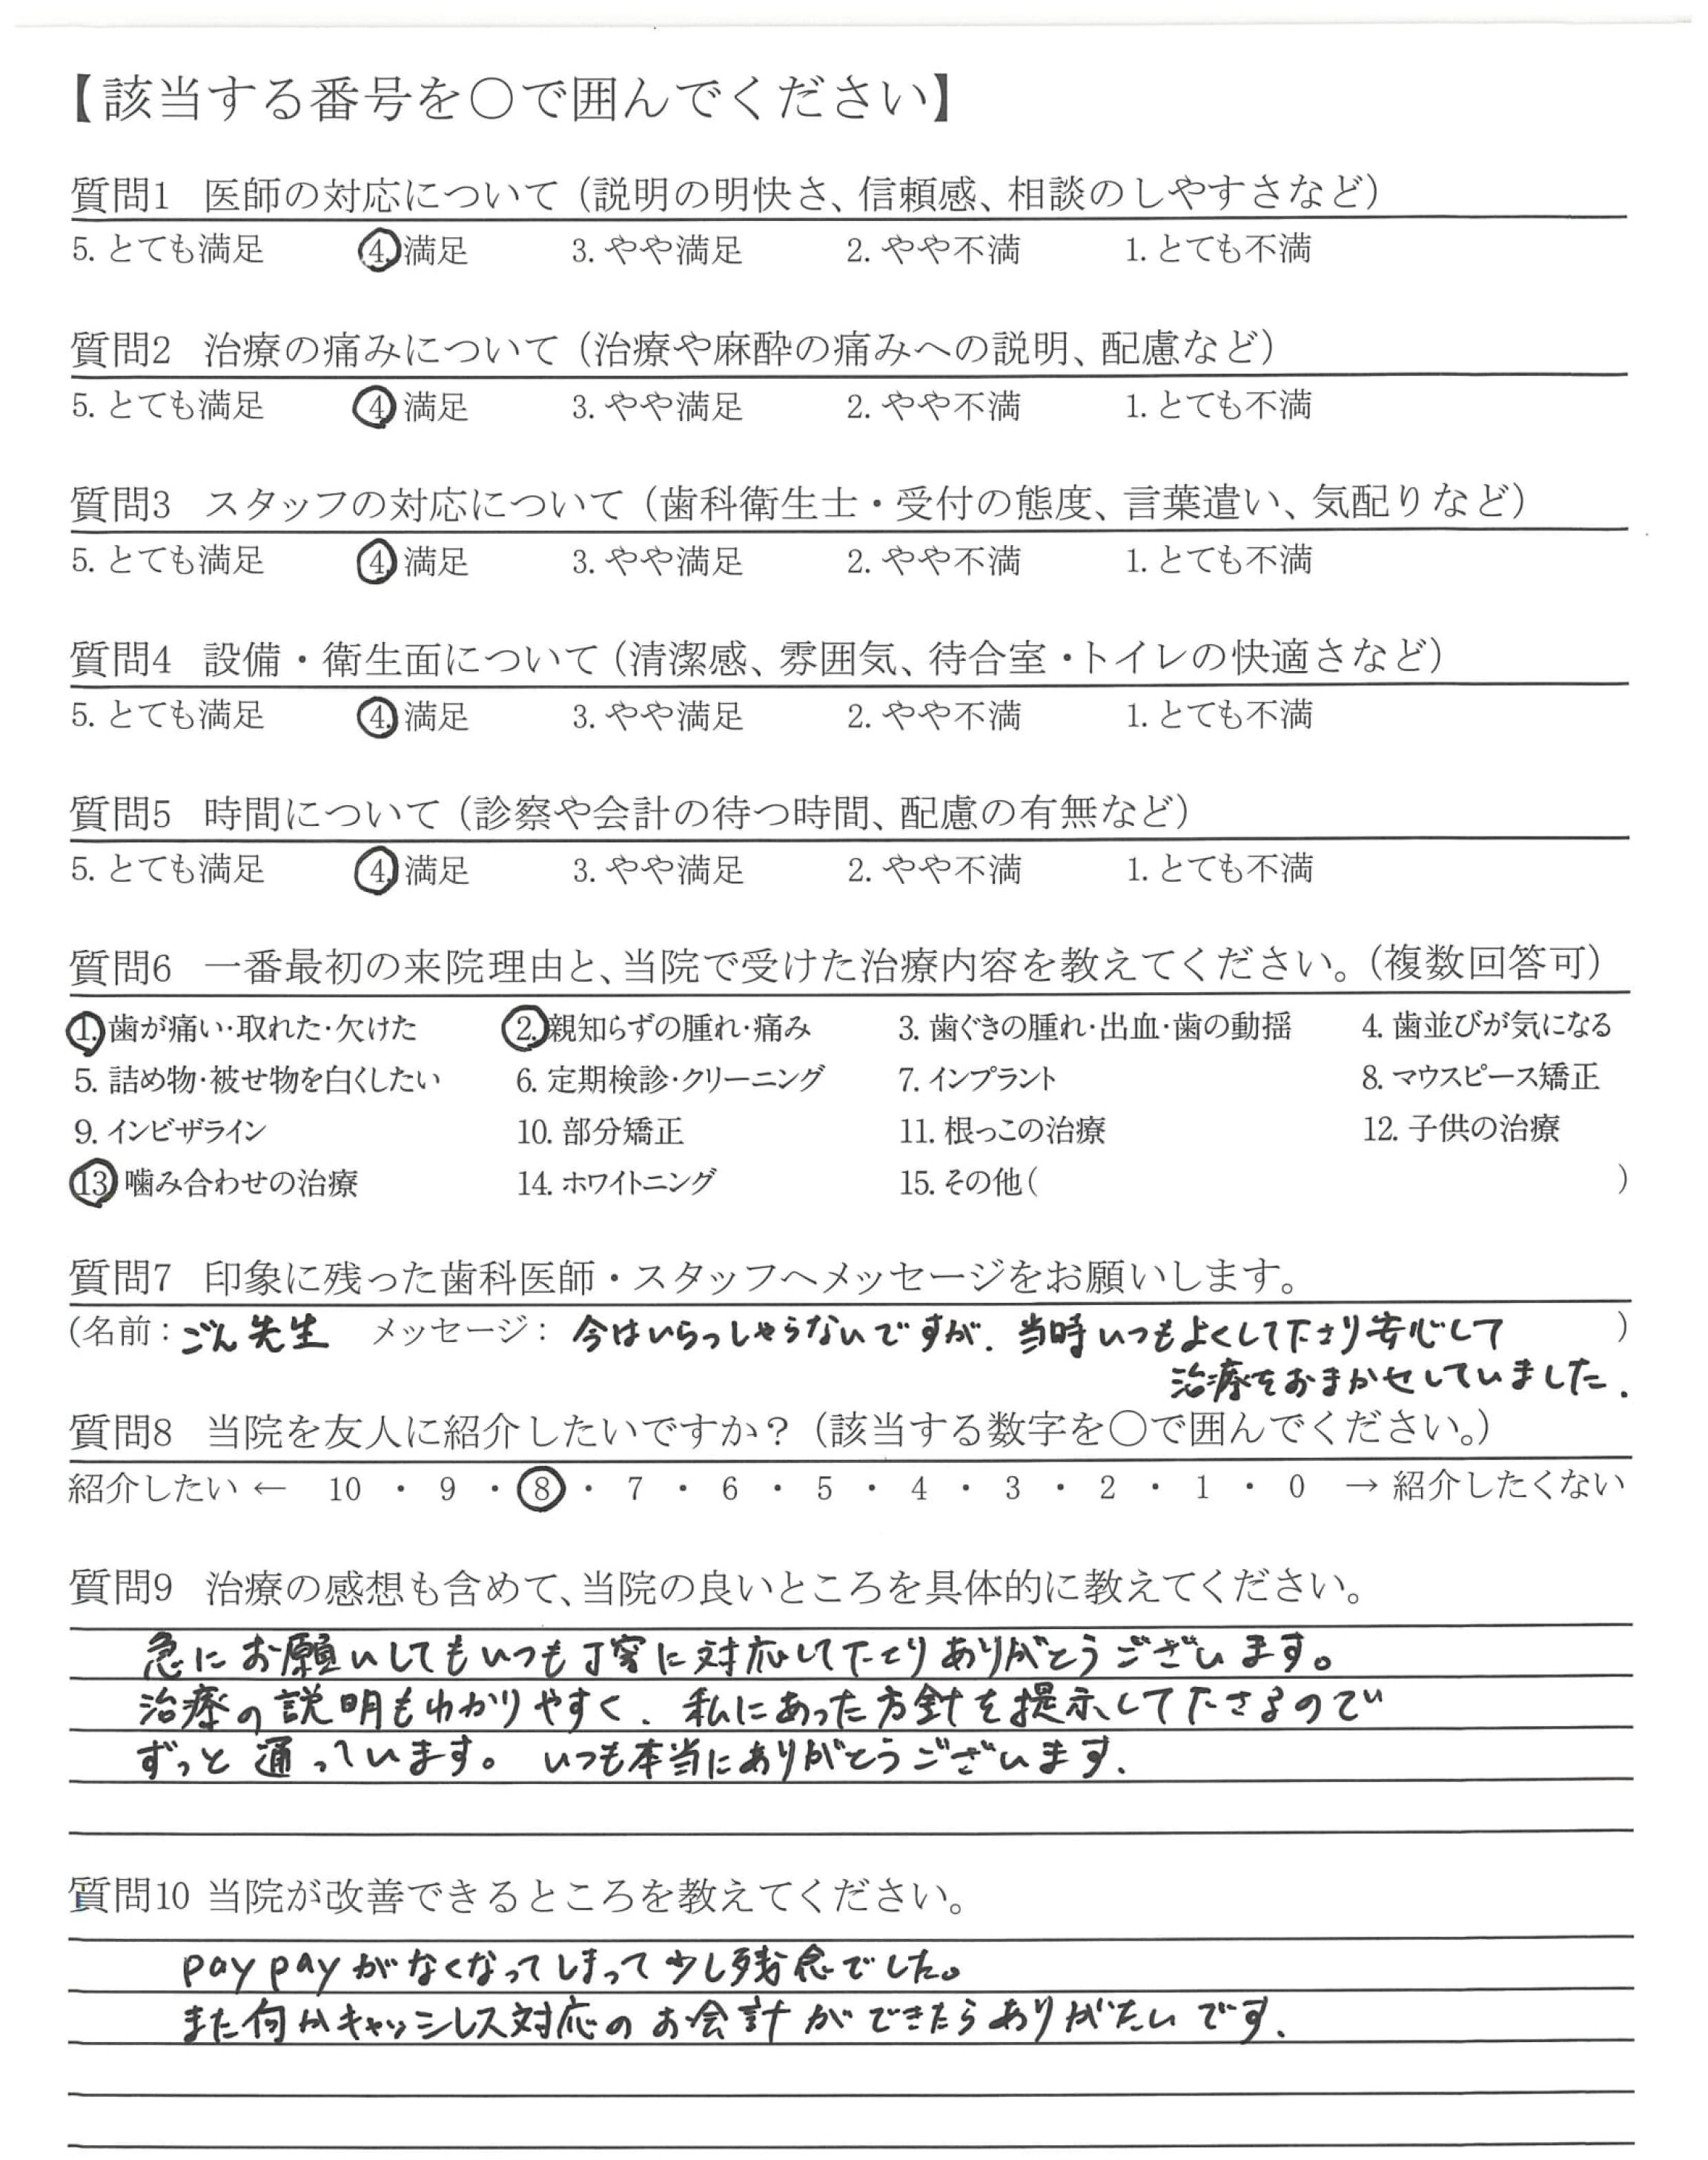 【該当する番号を〇で囲んでください】
質問1 医師の対応について（説明の明快さ、信頼感、相談のしやすさなど）
5. とても満足 4. 満足 3. やや満足 2. やや不満 1. とても不満
質問2 治療の痛みについて（治療や麻酔の痛みへの説明、配慮など）
5. とても満足 4. 満足 3. やや満足 2. やや不満 1. とても不満
質問3 スタッフの対応について（歯科衛生士・受付の態度、言葉遣い、気配りなど）
5. とても満足 4. 満足 3. やや満足 2. やや不満 1. とても不満
質問4 設備・衛生面について（清潔感、雰囲気、待合室・トイレの快適さなど）
5. とても満足 4. 満足 3. やや満足 2. やや不満 1. とても不満
質問5 時間について（診察や会計の待つ時間、配慮の有無など）
5. とても満足 4. 満足 3. やや満足 2. やや不満 1. とても不満
質問6 一番最初の来院理由と、当院で受けた治療内容を教えてください。（複数回答可）
1. 歯が痛い・取れた・欠けた 2. 親知らずの腫れ・痛み 3. 歯ぐきの腫れ・出血・歯の動揺 4. 歯並びが気になる
5. 詰め物・被せ物を白くしたい 6. 定期検診・クリーニング 7. インプラント 8. マウスピース矯正
9. インビザライン 10. 部分矯正 11. 根っこの治療 12. 子供の治療
13. 噛み合わせの治療 14. ホワイトニング 15. その他（ ）
質問7 印象に残った歯科医師・スタッフへメッセージをお願いします。
（名前：ごん先生 メッセージ：今はいらっしゃらないですが、当時いつもよくして下さり安心して ）
治療をおまかせしていました。
質問8 当院を友人に紹介したいですか？（該当する数字を〇で囲んでください。）
紹介したい ← 10 ・ 9 ・ 8 ・ 7 ・ 6 ・ 5 ・ 4 ・ 3 ・ 2 ・ 1 ・ 0 → 紹介したくない
質問9 治療の感想も含めて、当院の良いところを具体的に教えてください。
急にお願いしてもいつも丁寧に対応して下さりありがとうございます。
治療の説明もわかりやすく、私にあった方針を提示して下さるので
ずっと通っています。いつも本当にありがとうございます。
質問10 当院が改善できるところを教えてください。
paypayがなくなってしまって少し残念でした。
また何かキャッシュレス対応のお会計ができたらありがたいです。